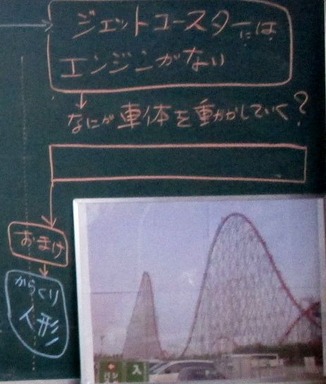 ジェットコースターには
エンジンがない
なにが車体を動かしていく?
おまけ
からくり
人形
入